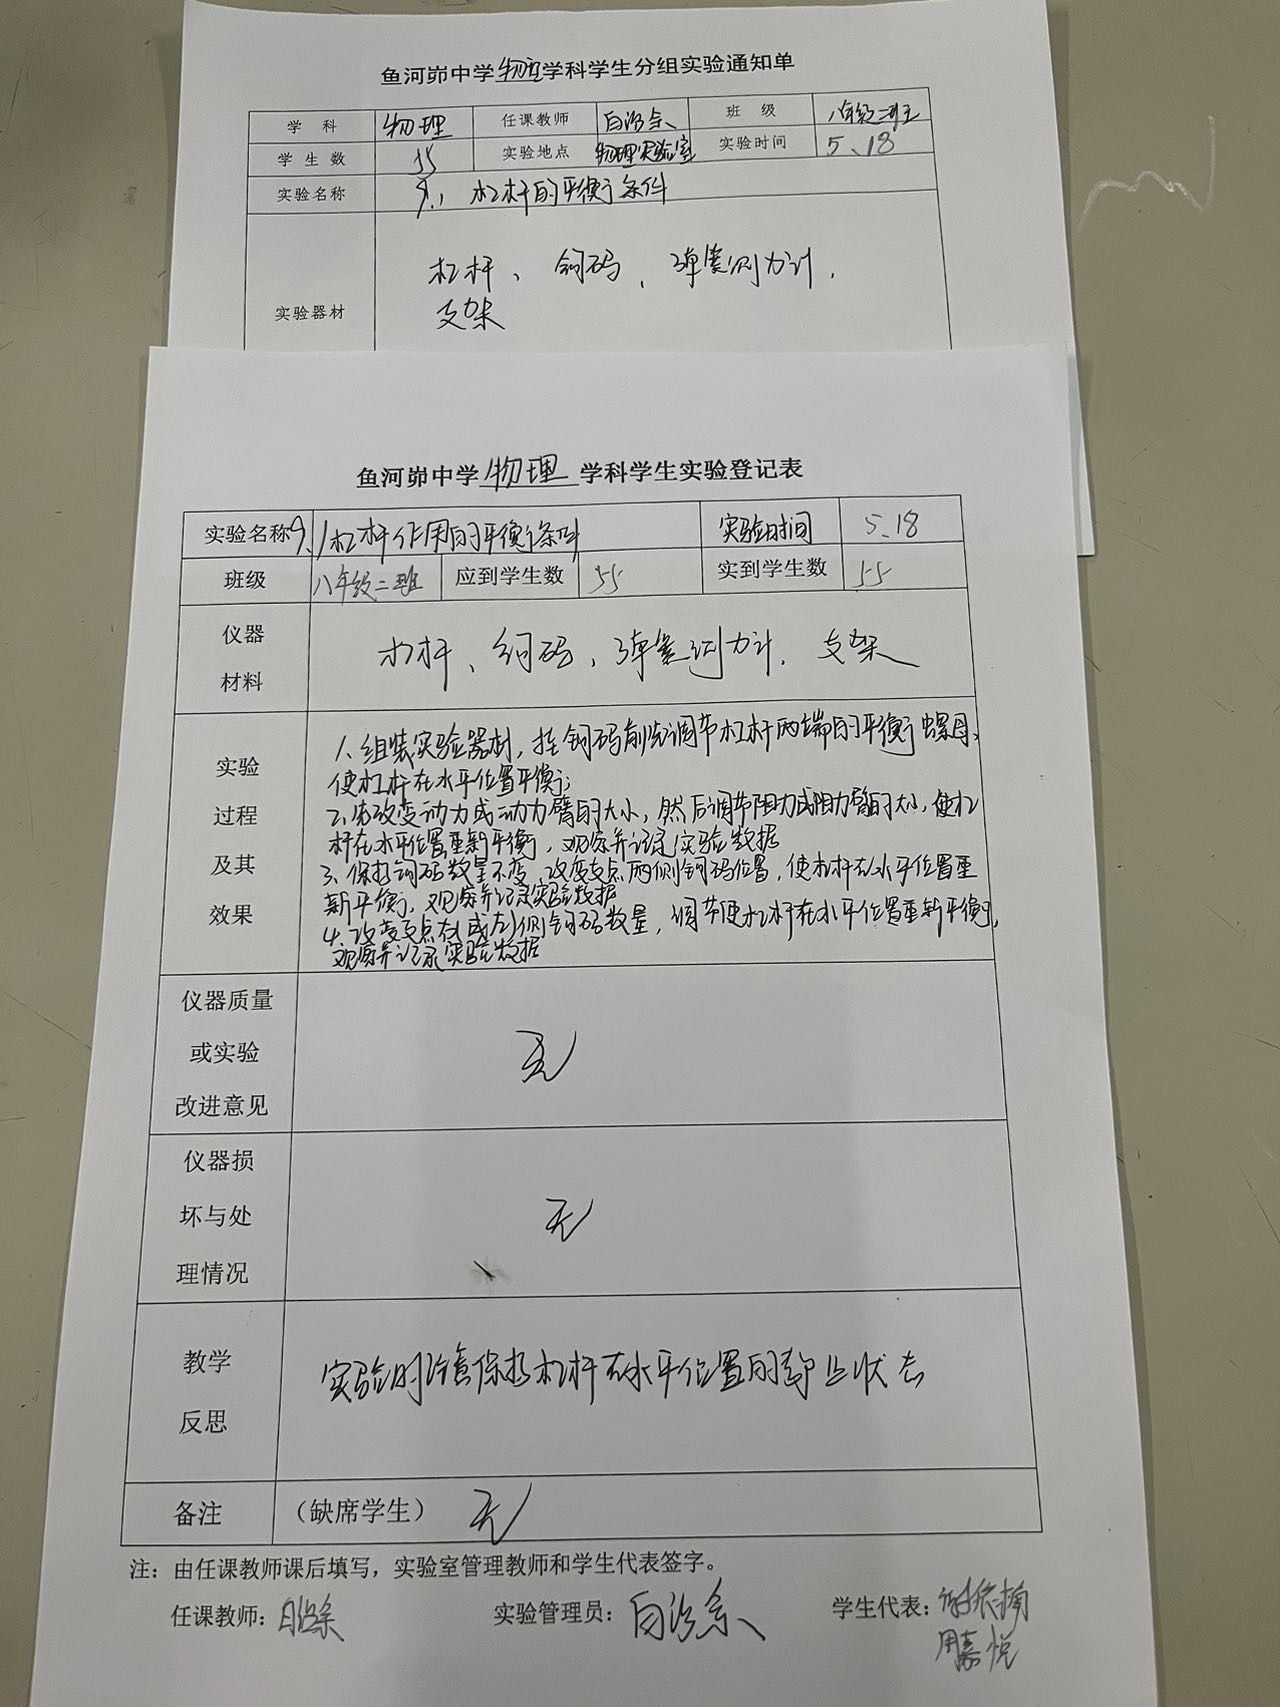 鱼河峁中学物理学科学生分组实验通知单
学 科 物理 任课教师 白治余 班 级 八年级二班
学 生 数 55 实验地点 物理实验室 实验时间 5.18
实验名称 9.1 杠杆的平衡条件
杠杆、钩码、弹簧测力计,
支架
实验器材
鱼河峁中学 物理 学科学生实验登记表
实验名称 9.1杠杆作用的平衡条件 实验时间 5.18
班级 八年级二班 应到学生数 55 实到学生数 55
仪器
材料
杠杆、钩码、弹簧测力计、支架
实验
过程
及其
效果
1、组装实验器材,挂钩码前先调节杠杆两端的平衡螺母,
使杠杆在水平位置平衡;
2、先改变动力或动力臂的大小,然后调节阻力或阻力臂的大小,使杠
杆在水平位置重新平衡,观察并记录实验数据
3、保持钩码数量不变,改变支点两侧钩码位置,使杠杆在水平位置重
新平衡,观察并记录实验数据
4、改变支点右(或左)侧钩码数量,调节使杠杆在水平位置重新平衡,
观察并记录实验数据
仪器质量
或实验
改进意见
无
仪器损
坏与处
理情况
无
教学
反思
实验时注意保持杠杆在水平位置的静止状态
备注 (缺席学生) 无
注:由任课教师课后填写,实验室管理教师和学生代表签字。
任课教师: 白治余 实验管理员: 白治余 学生代表:
周嘉悦